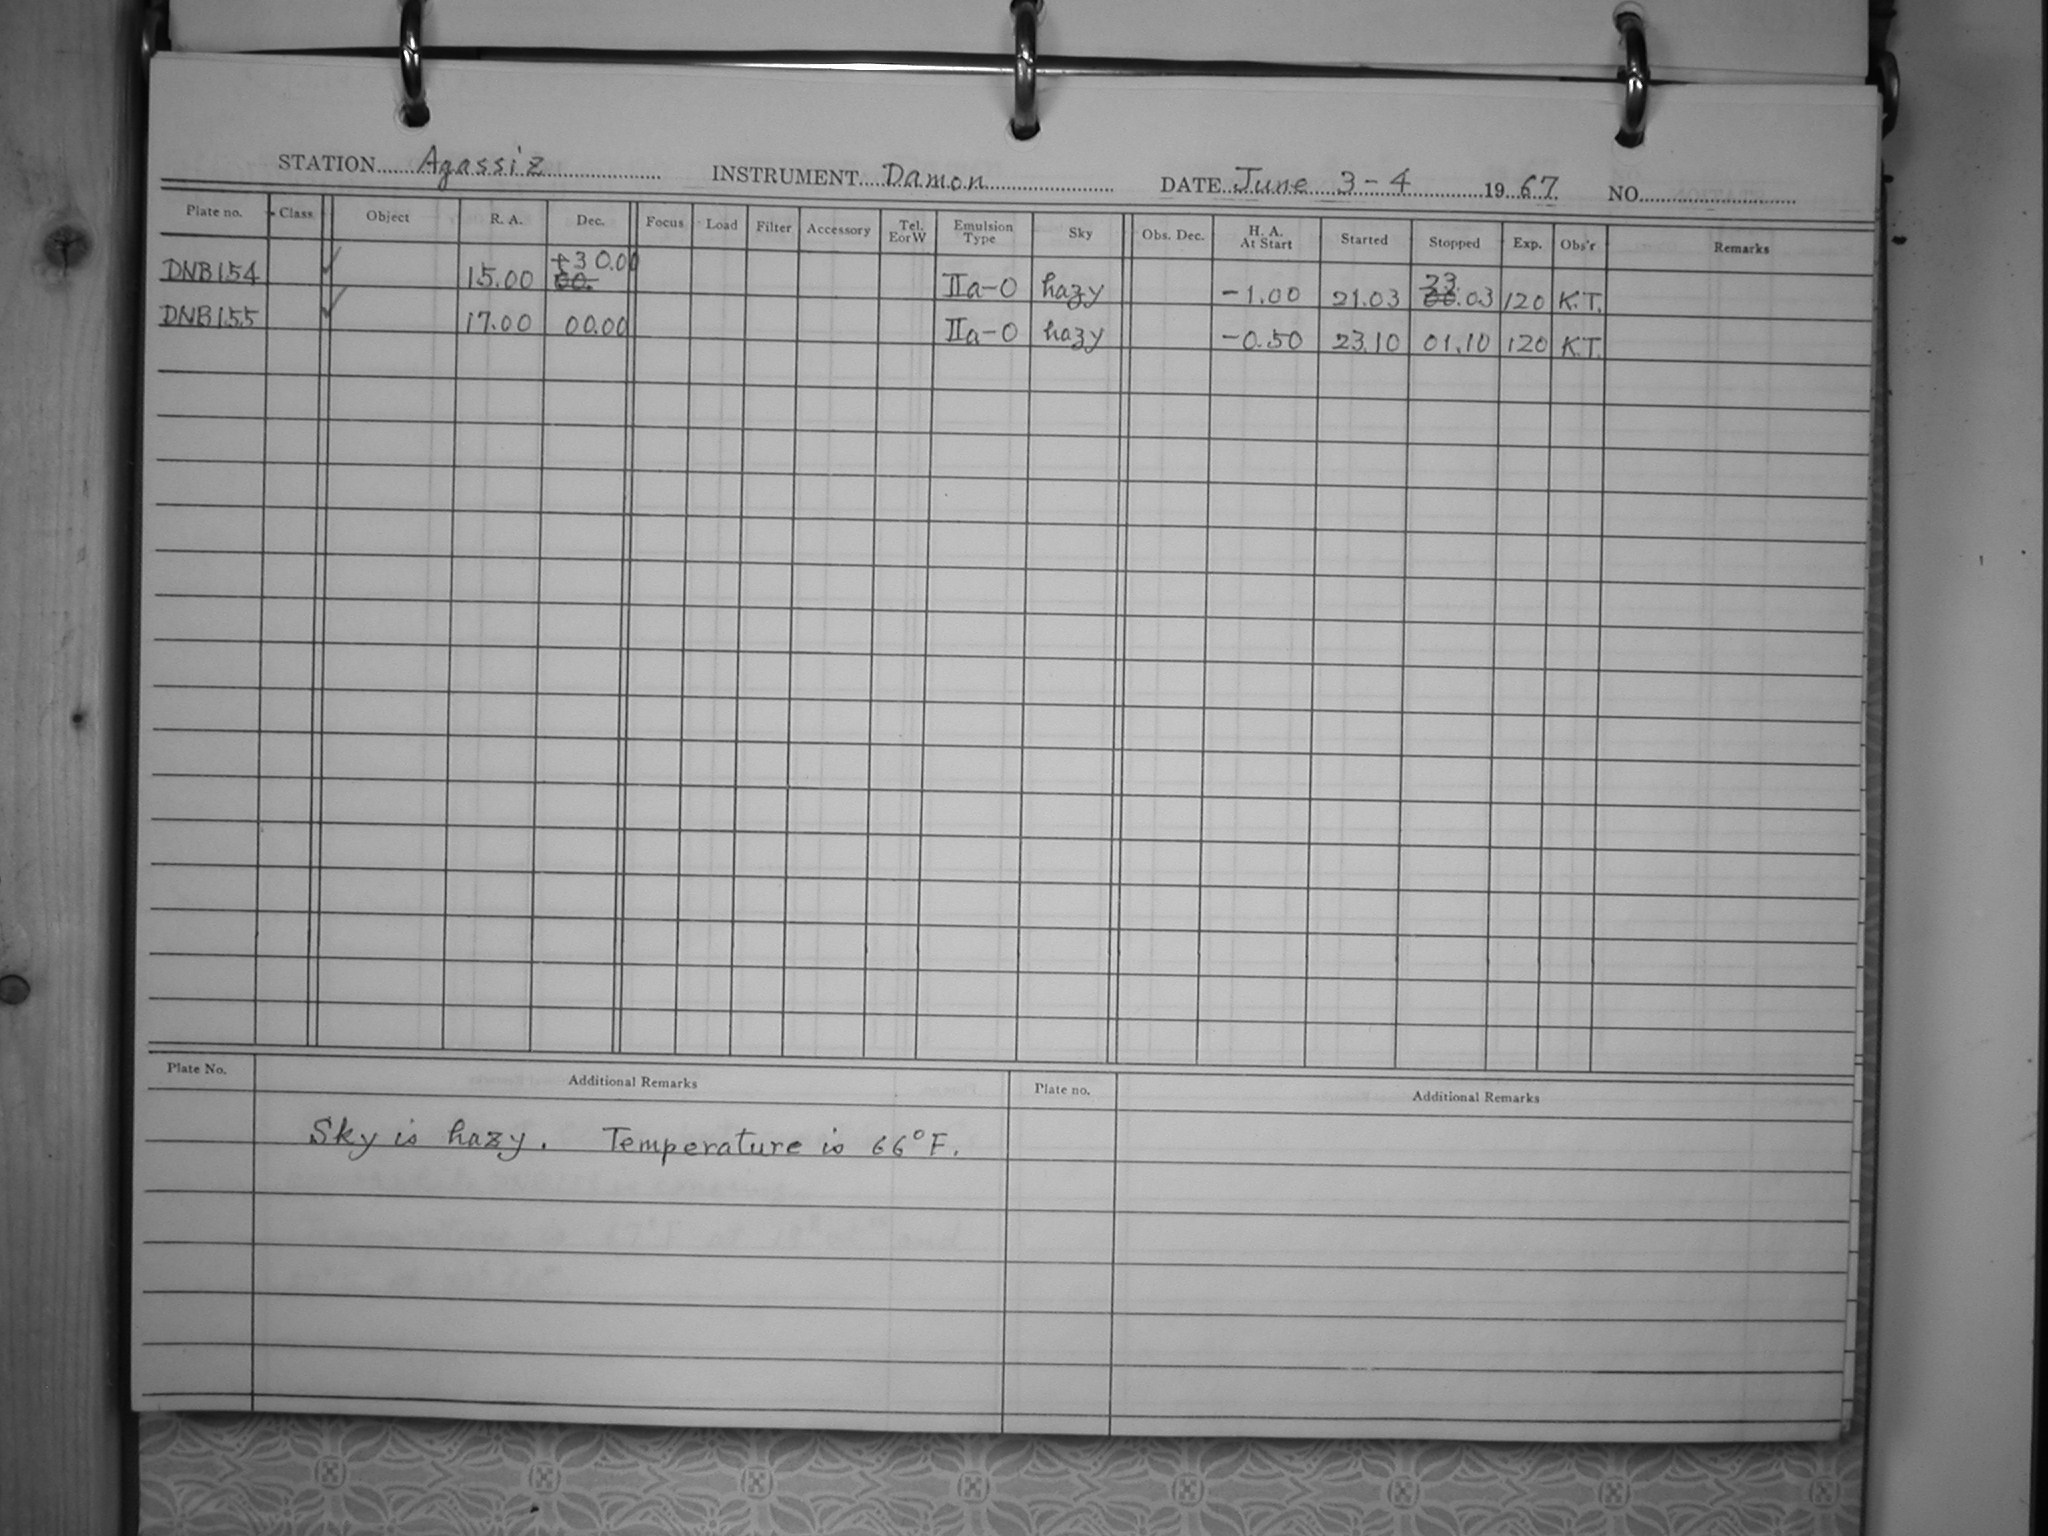 STATION Agassiz INSTRUMENT Damon DATE June 3-4 1967 NO.
Plate no. Class Object R. A. Dec. Focus Load Filter Accessory Tel. E or W Emulsion Type Sky Obs. Dec. H. A. At Start Started Stopped Exp. Obs'r Remarks
DNB154 ✓ 15.00 +30.00 IIa-O hazy -1.00 21.03 23.03 120 K.T.
DNB155 ✓ 17.00 00.00 IIa-O hazy -0.50 23.10 01.10 120 K.T.
Plate No. Additional Remarks Plate no. Additional Remarks
Sky is hazy. Temperature is 66°F.